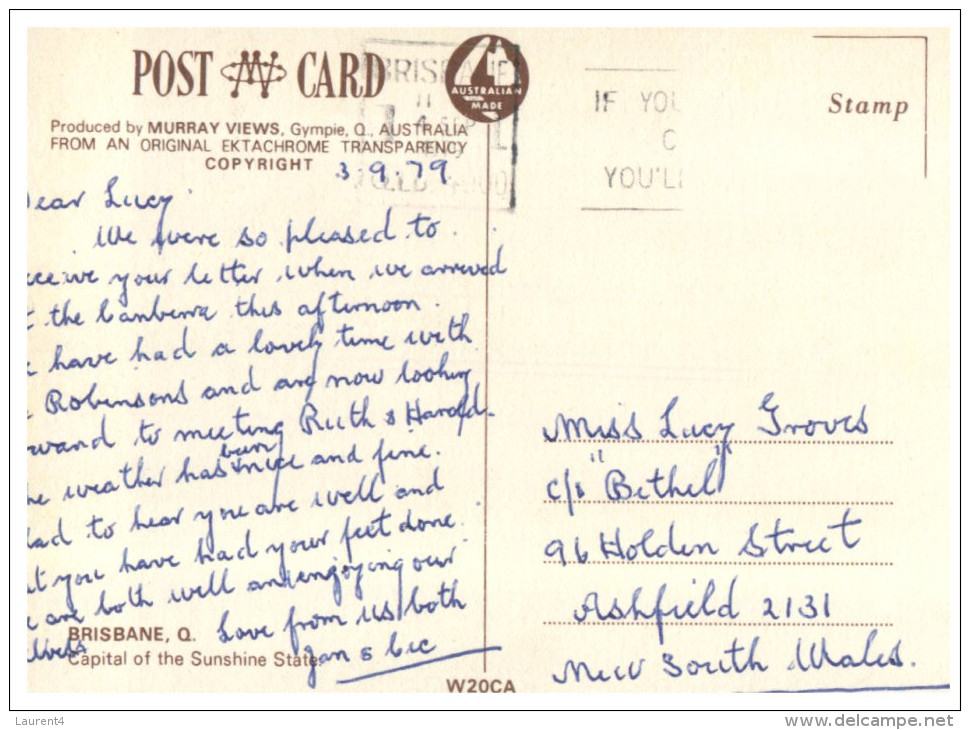 POST CARD
AUSTRALIAN
MADE
BRISBANE
11
4 SEP
QLD. 4000
IF YOU
C
YOU'LL
Stamp
Produced by MURRAY VIEWS, Gympie, Q., AUSTRALIA
FROM AN ORIGINAL EKTACHROME TRANSPARENCY
COPYRIGHT
3.9.79
Dear Lucy
We were so pleased to
receive your letter when we arrived
at the Canberra this afternoon.
have had a lovely time with
Robinsons and are now looking
forward to meeting Ruth & Harold.
The weather has been nice and fine.
Glad to hear you are well and
that you have had your feet done.
We are both well and enjoying our
selves
Love from us both
Jan &
BRISBANE, Q.
Capital of the Sunshine State
W20CA
Miss Lucy Groves
c/o "Bethel"
96 Holden Street
Ashfield 2131
New South Wales.
Laurent4
www.delcampe.net